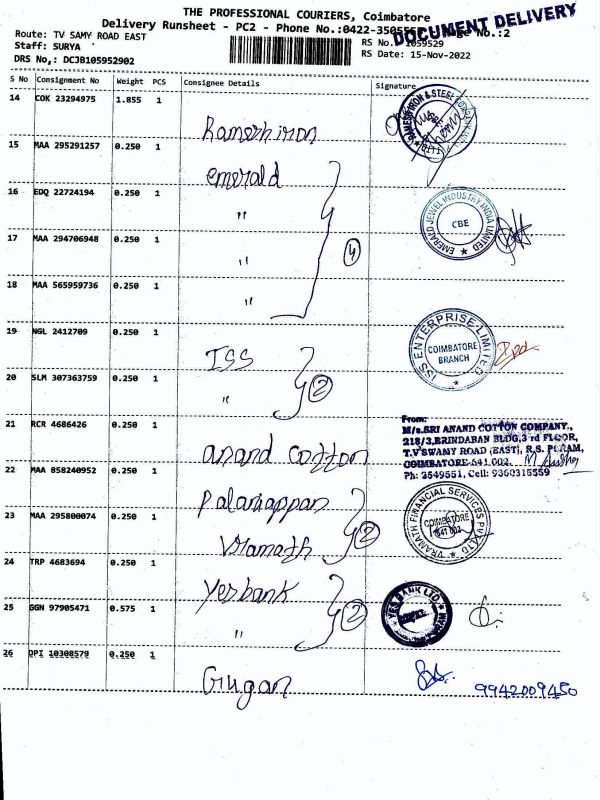 THE PROFESSIONAL COURIERS, Coimbatore
DOCUMENT DELIVERY
Delivery Runsheet - PC2 - Phone No.:0422-350555 Page No.:2
Route: TV SAMY ROAD EAST
RS No. 1059529
Staff: SURYA
RS Date: 15-Nov-2022
DRS No,: DCJB105952902
S No Consignment No Weight PCS Consignee Details Signature
14 COK 23294975 1.855 1
Ramesh iron
RAMESH IRON & STEEL
15 MAA 295291257 0.250 1
emerald
16 EDQ 22724194 0.250 1
"
EMERALD JEWEL INDUSTRY INDIA LIMITED
CBE
17 MAA 294706948 0.250 1
" 4
18 MAA 565959736 0.250 1
"
19 NGL 2412709 0.250 1
ISS
ISS ENTERPRISE LIMITED
COIMBATORE
BRANCH
20 SLM 307363759 0.250 1
" 2
21 RCR 4686426 0.250 1
anand cotton
From:
M/s.SRI ANAND COTTON COMPANY.,
218/3,BRINDABAN BLDG,3 rd FLOOR,
T.V SWAMY ROAD (EAST), R.S. PURAM,
COIMBATORE-641 002.
Ph: 2549551, Cell: 9360315559
22 MAA 858240952 0.250 1
Palaniappan
23 MAA 295800074 0.250 1
Vramath 2
VRAMATH FINANCIAL SERVICES PVT LTD
COIMBATORE
641 002
24 TRP 4683694 0.250 1
Yesbank
25 GGN 97905471 0.575 1
" 2
YES BANK LTD.
26 DPI 10308579 0.250 1
Gugan
9942009450